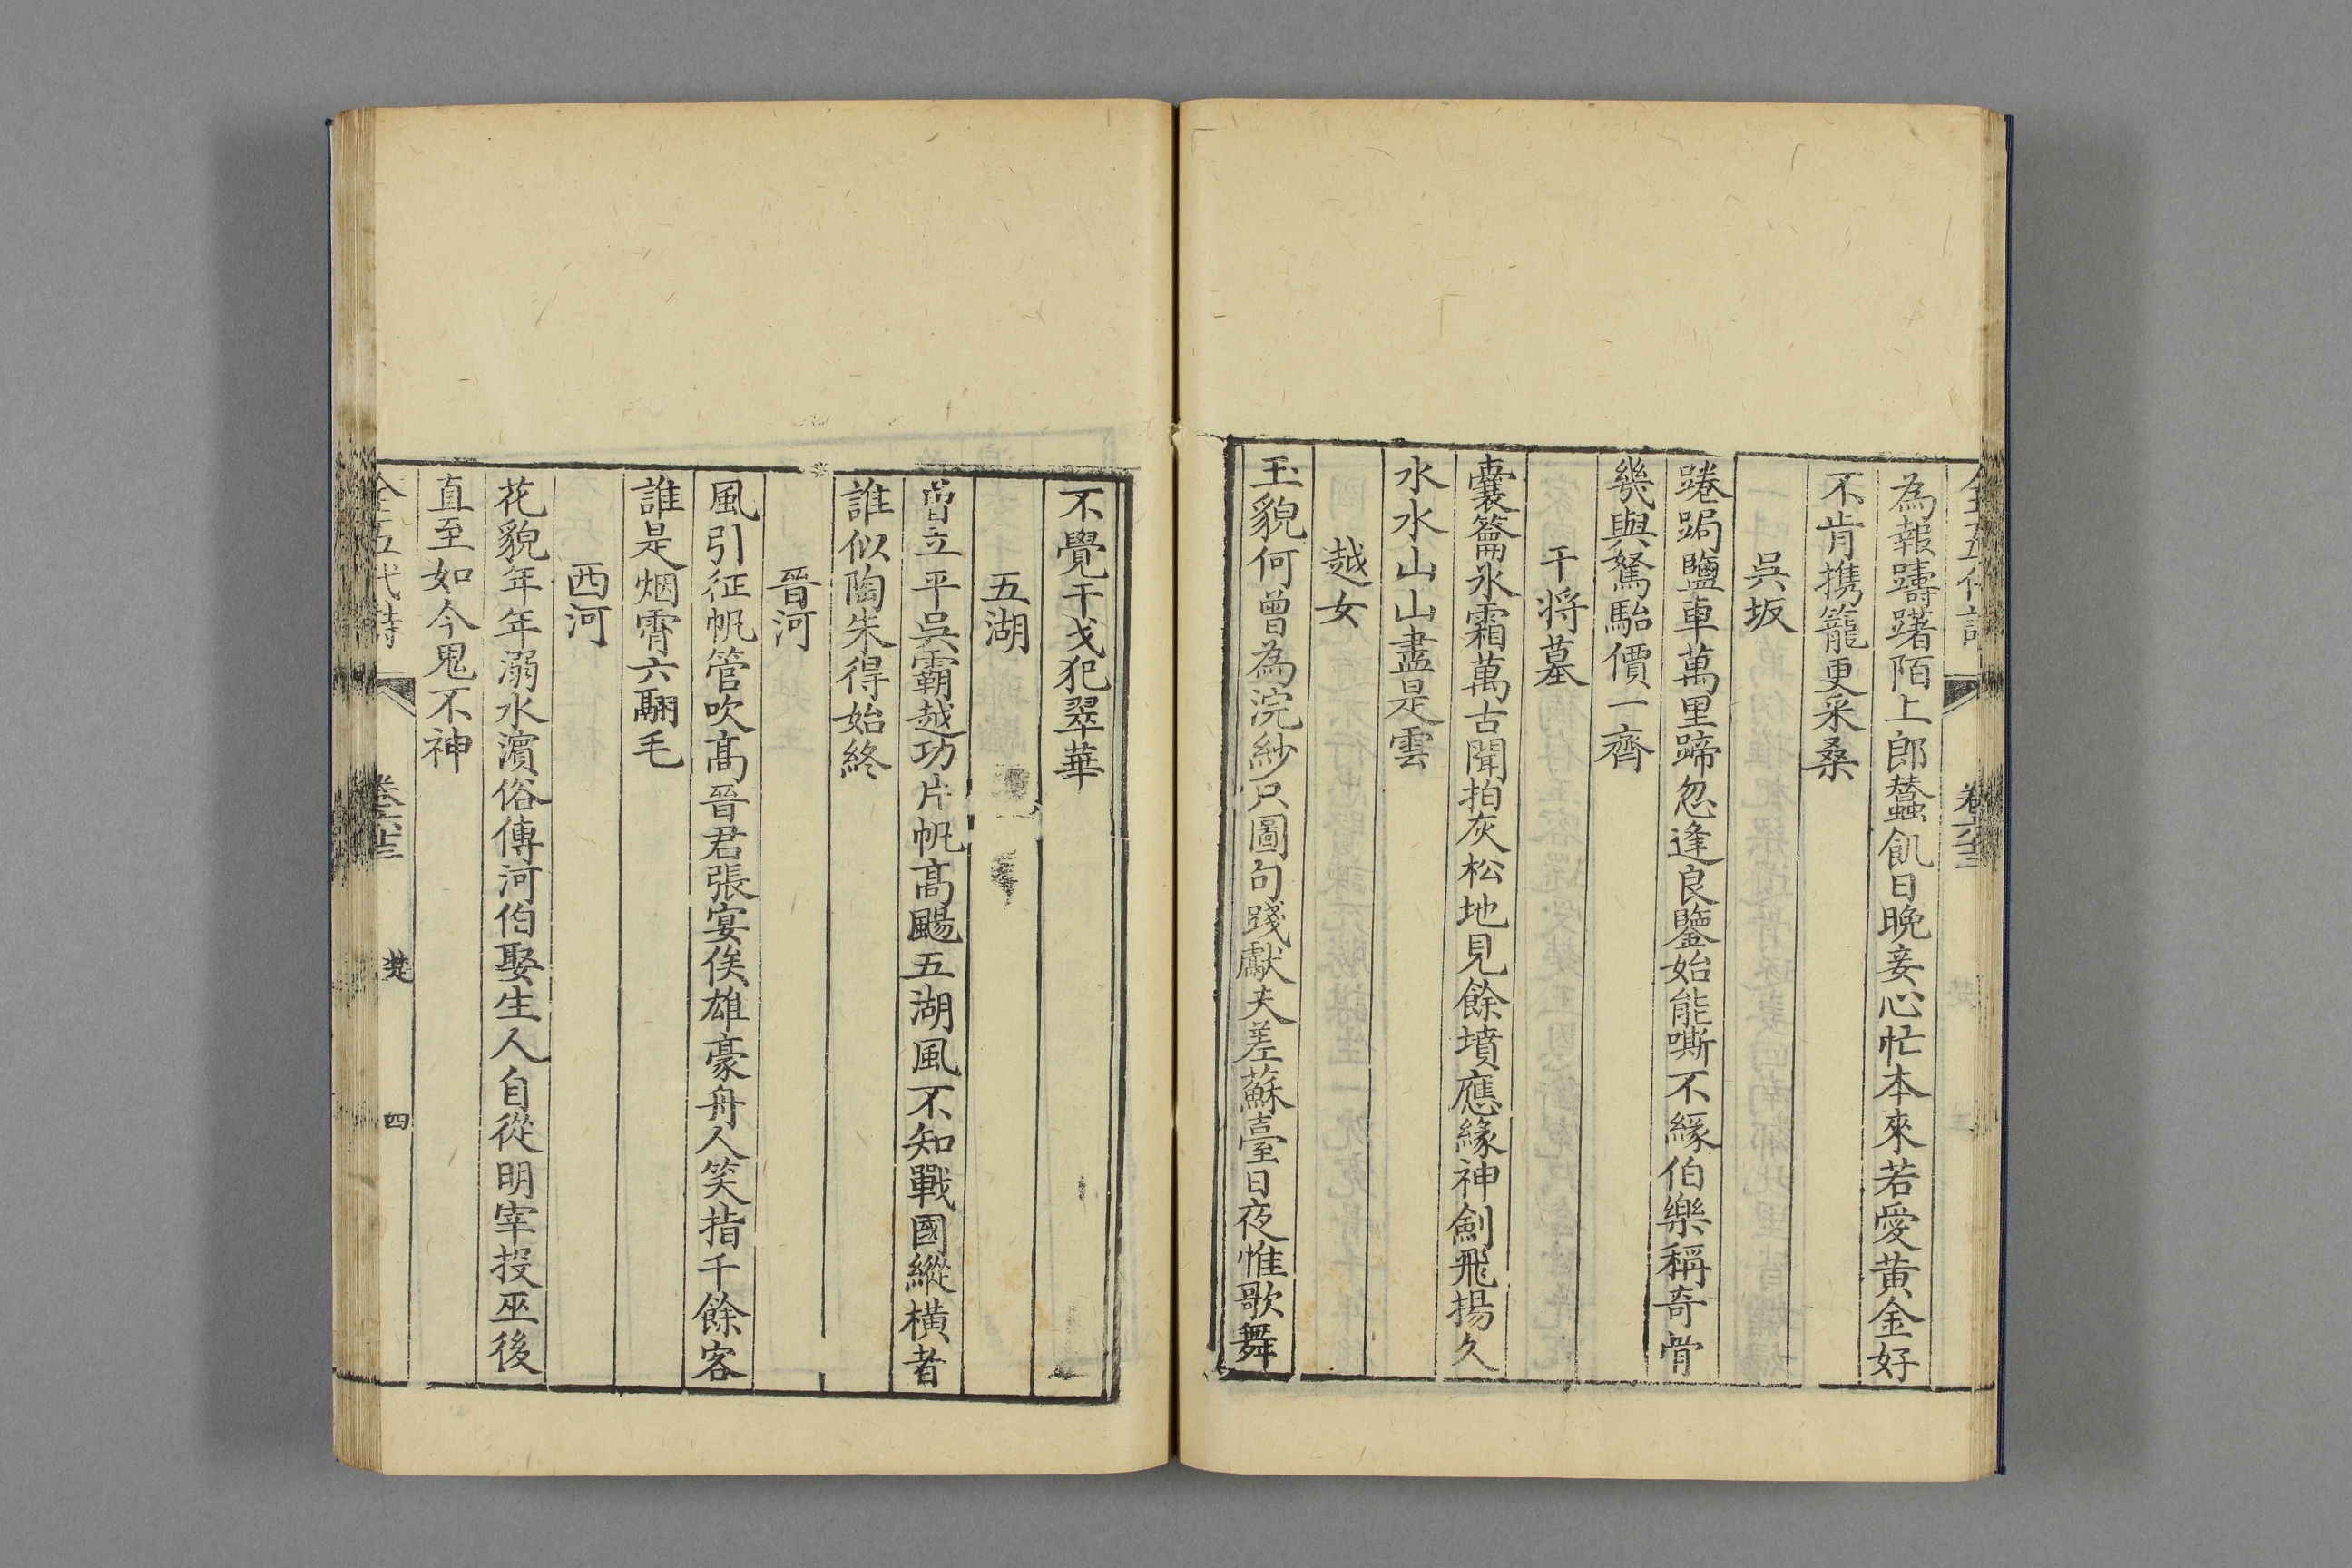 全五代詩 卷六十三
為報躊躇陌上郎蠶飢日晚妾心忙本來若愛黃金好
不肯携籠更采桑
吳坂
踡跼鹽車萬里蹄忽逢良鑒始能嘶不緣伯樂稱奇骨
幾與駑駘價一齊
干將墓
囊籥氷霜萬古聞拍灰松地見餘墳應緣神劍飛揚久
水水山山盡是雲
越女
玉貌何曾為浣紗只圖句踐獻夫差蘇臺日夜惟歌舞
不覺干戈犯翠華
五湖
曾立平吳霸越功片帆高颺五湖風不知戰國縱橫者
誰似陶朱得始終
晉河
風引征帆管吹高晉君張宴俟雄豪舟人笑指千餘客
誰是烟霄六翮毛
西河
花貌年年溺水濵俗傳河伯娶生人自從明宰投巫後
直至如今鬼不神
全五代詩 卷六十三 楚 四